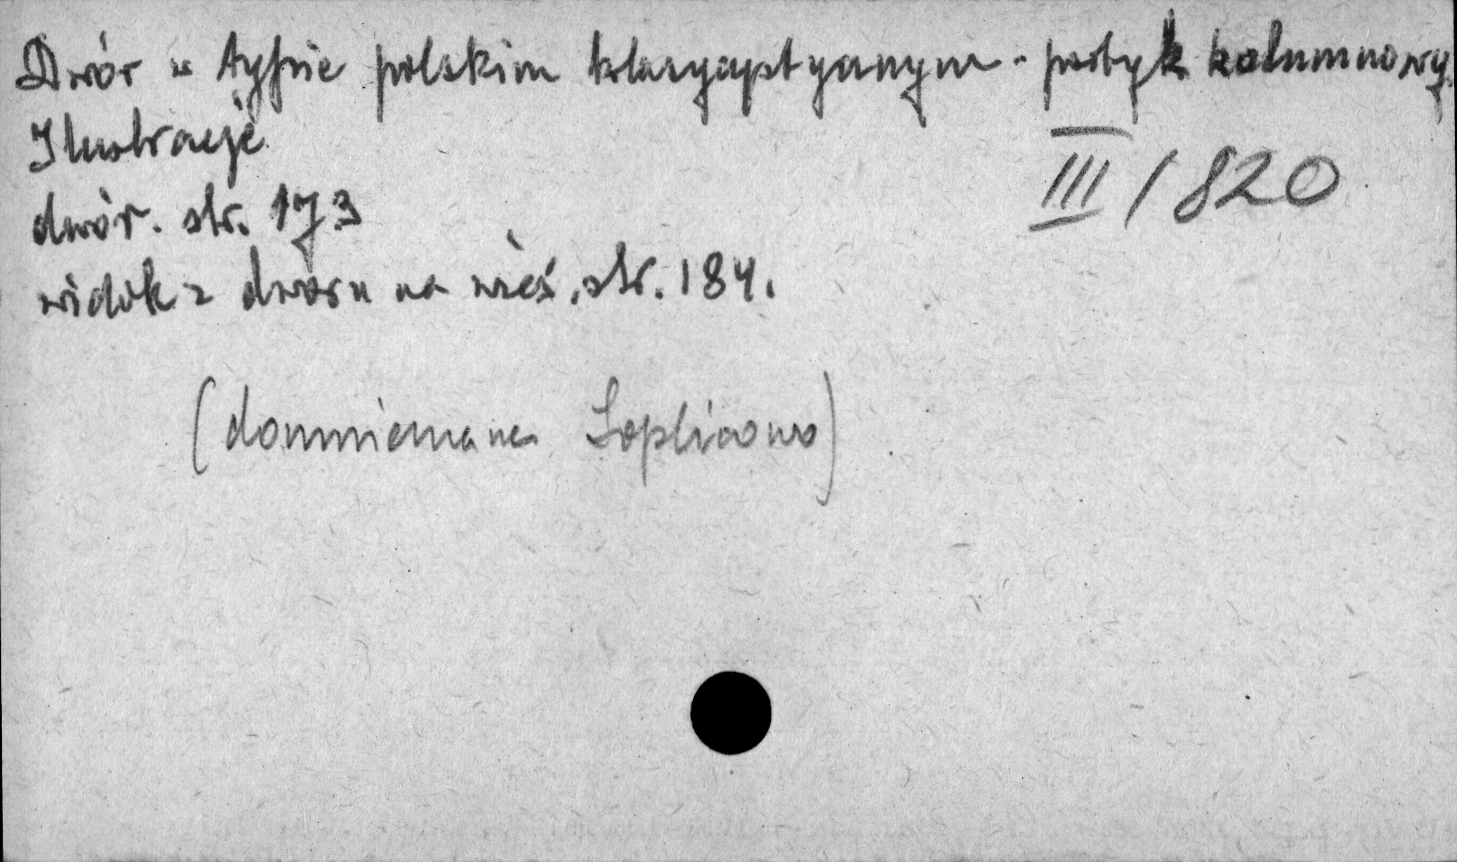 Dwór w typie polskim klasycystycznym - portyk kolumnowy.
Ilustracje
dwór. str. 173
widok z dworu na wieś. str. 184.
III / 820
(domniemane Soplicowo)